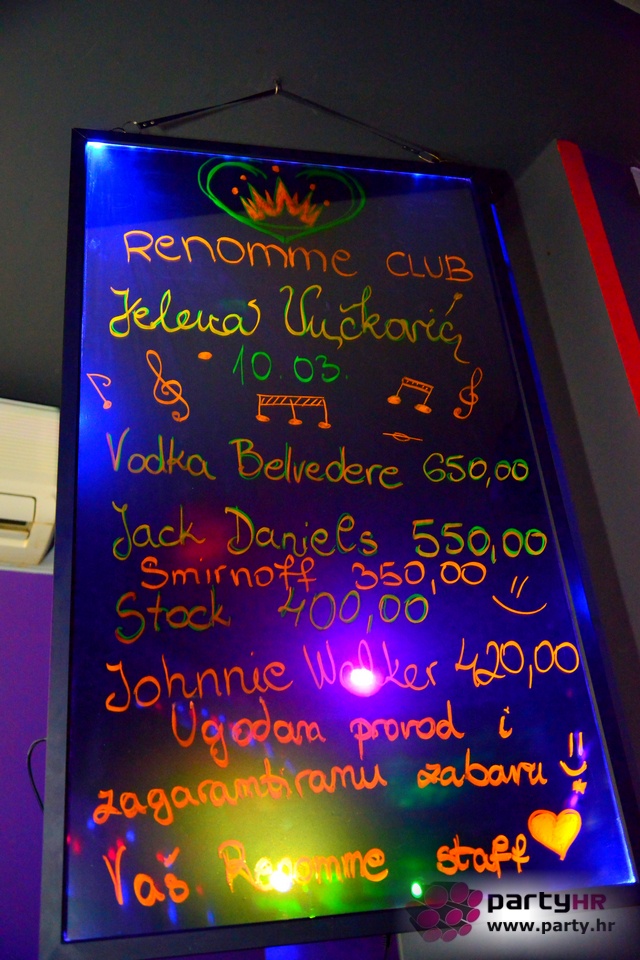 Renomme CLUB
Jelena Vučković
10.03.
Vodka Belvedere 650,00
Jack Daniels 550,00
Smirnoff 350,00
Stock 400,00
Johnnie Walker 420,00
Ugodan provod i
zagarantiranu zabavu
Vaš Renomme staff
partyHR
www.party.hr